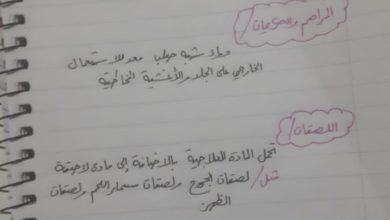 المراهم والدهونات/
دواء شبه صلب معد للاستعمال
الخارجي على الجلد والأغشية المخاطية
اللصقات/
تحمل المادة العلاجية بالاضافة إلى مادة لاصقة
مثل/ لصقات الجروح ولصقات مسمار اللحم ولصقات
الظهر